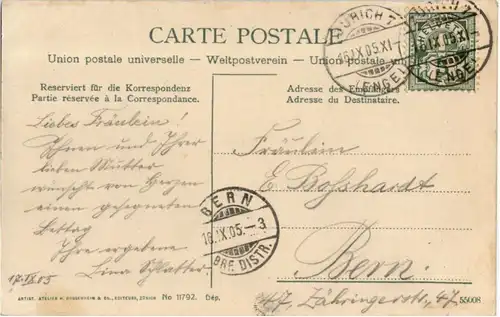 CARTE POSTALE
Union postale universelle — Weltpostverein — Union postale un
Reserviert für die Korrespondenz
Partie réservée à la Correspondance.
Adresse des Empfängers
Adresse du Destinataire.
ZÜRICH 7
16.IX.05.XI
(ENGE)
Liebes Fräulein!
Ihnen und Ihrer
lieben Mutter
wünscht von Herzen
einen gesegneten
Bettag
Ihre ergebene
Lina Schlatter.
17.IX.05
Fräulein
E. Bosshardt
Bern.
47, Zähringerstr. 47
BERN
16.IX.05.-3
BRE DISTR.
No 11792. Dép.
55008